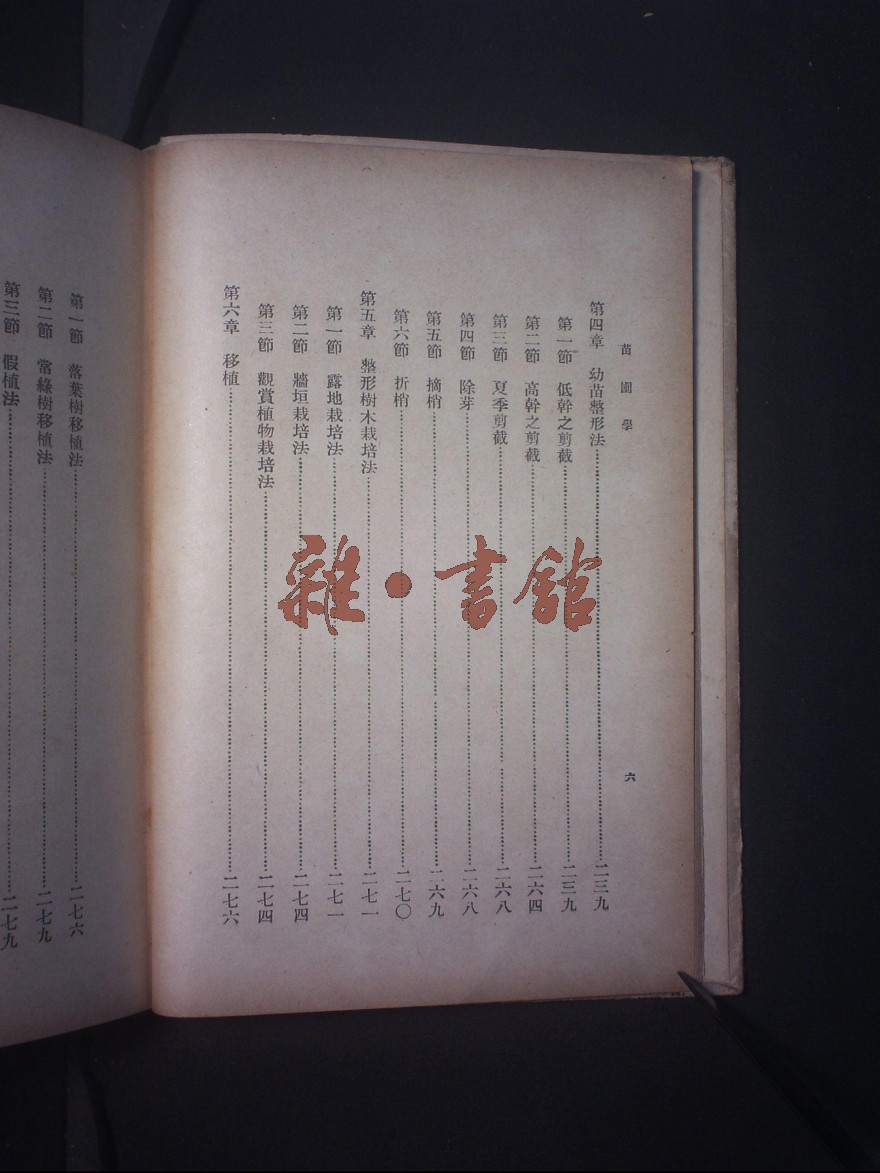 苗圃學
六
第四章 幼苗整形法…………二三九
第一節 低幹之剪截…………二三九
第二節 高幹之剪截…………二六四
第三節 夏季剪截…………二六八
第四節 除芽…………二六八
第五節 摘梢…………二六九
第六節 折梢…………二七〇
第五章 整形樹木栽培法…………二七一
第一節 露地栽培法…………二七一
第二節 牆垣栽培法…………二七四
第三節 觀賞植物栽培法…………二七四
第六章 移植…………二七六
第一節 落葉樹移植法…………二七六
第二節 常綠樹移植法…………二七九
第三節 假植法…………二七九
雜·書館